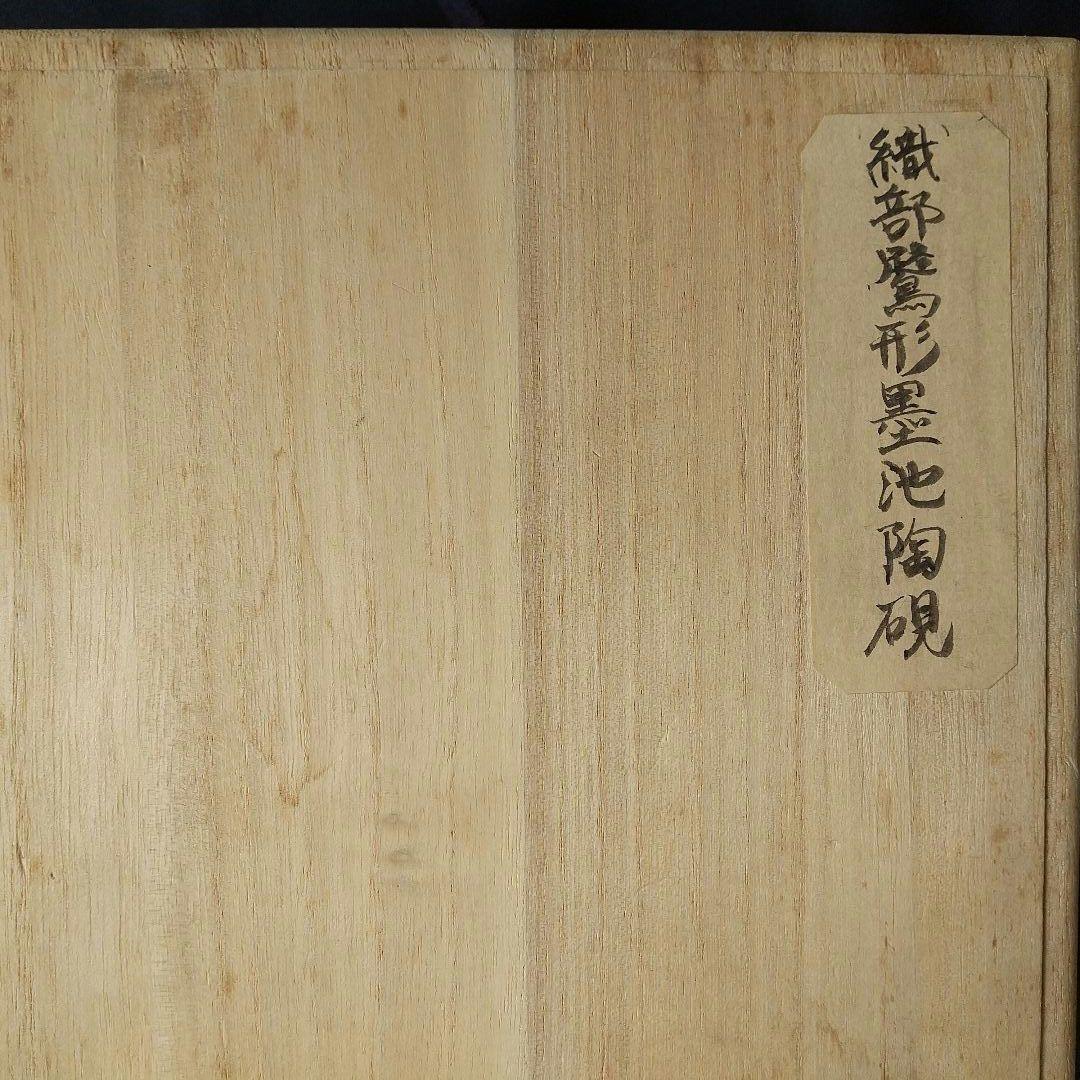 織部鷺形墨池陶硯